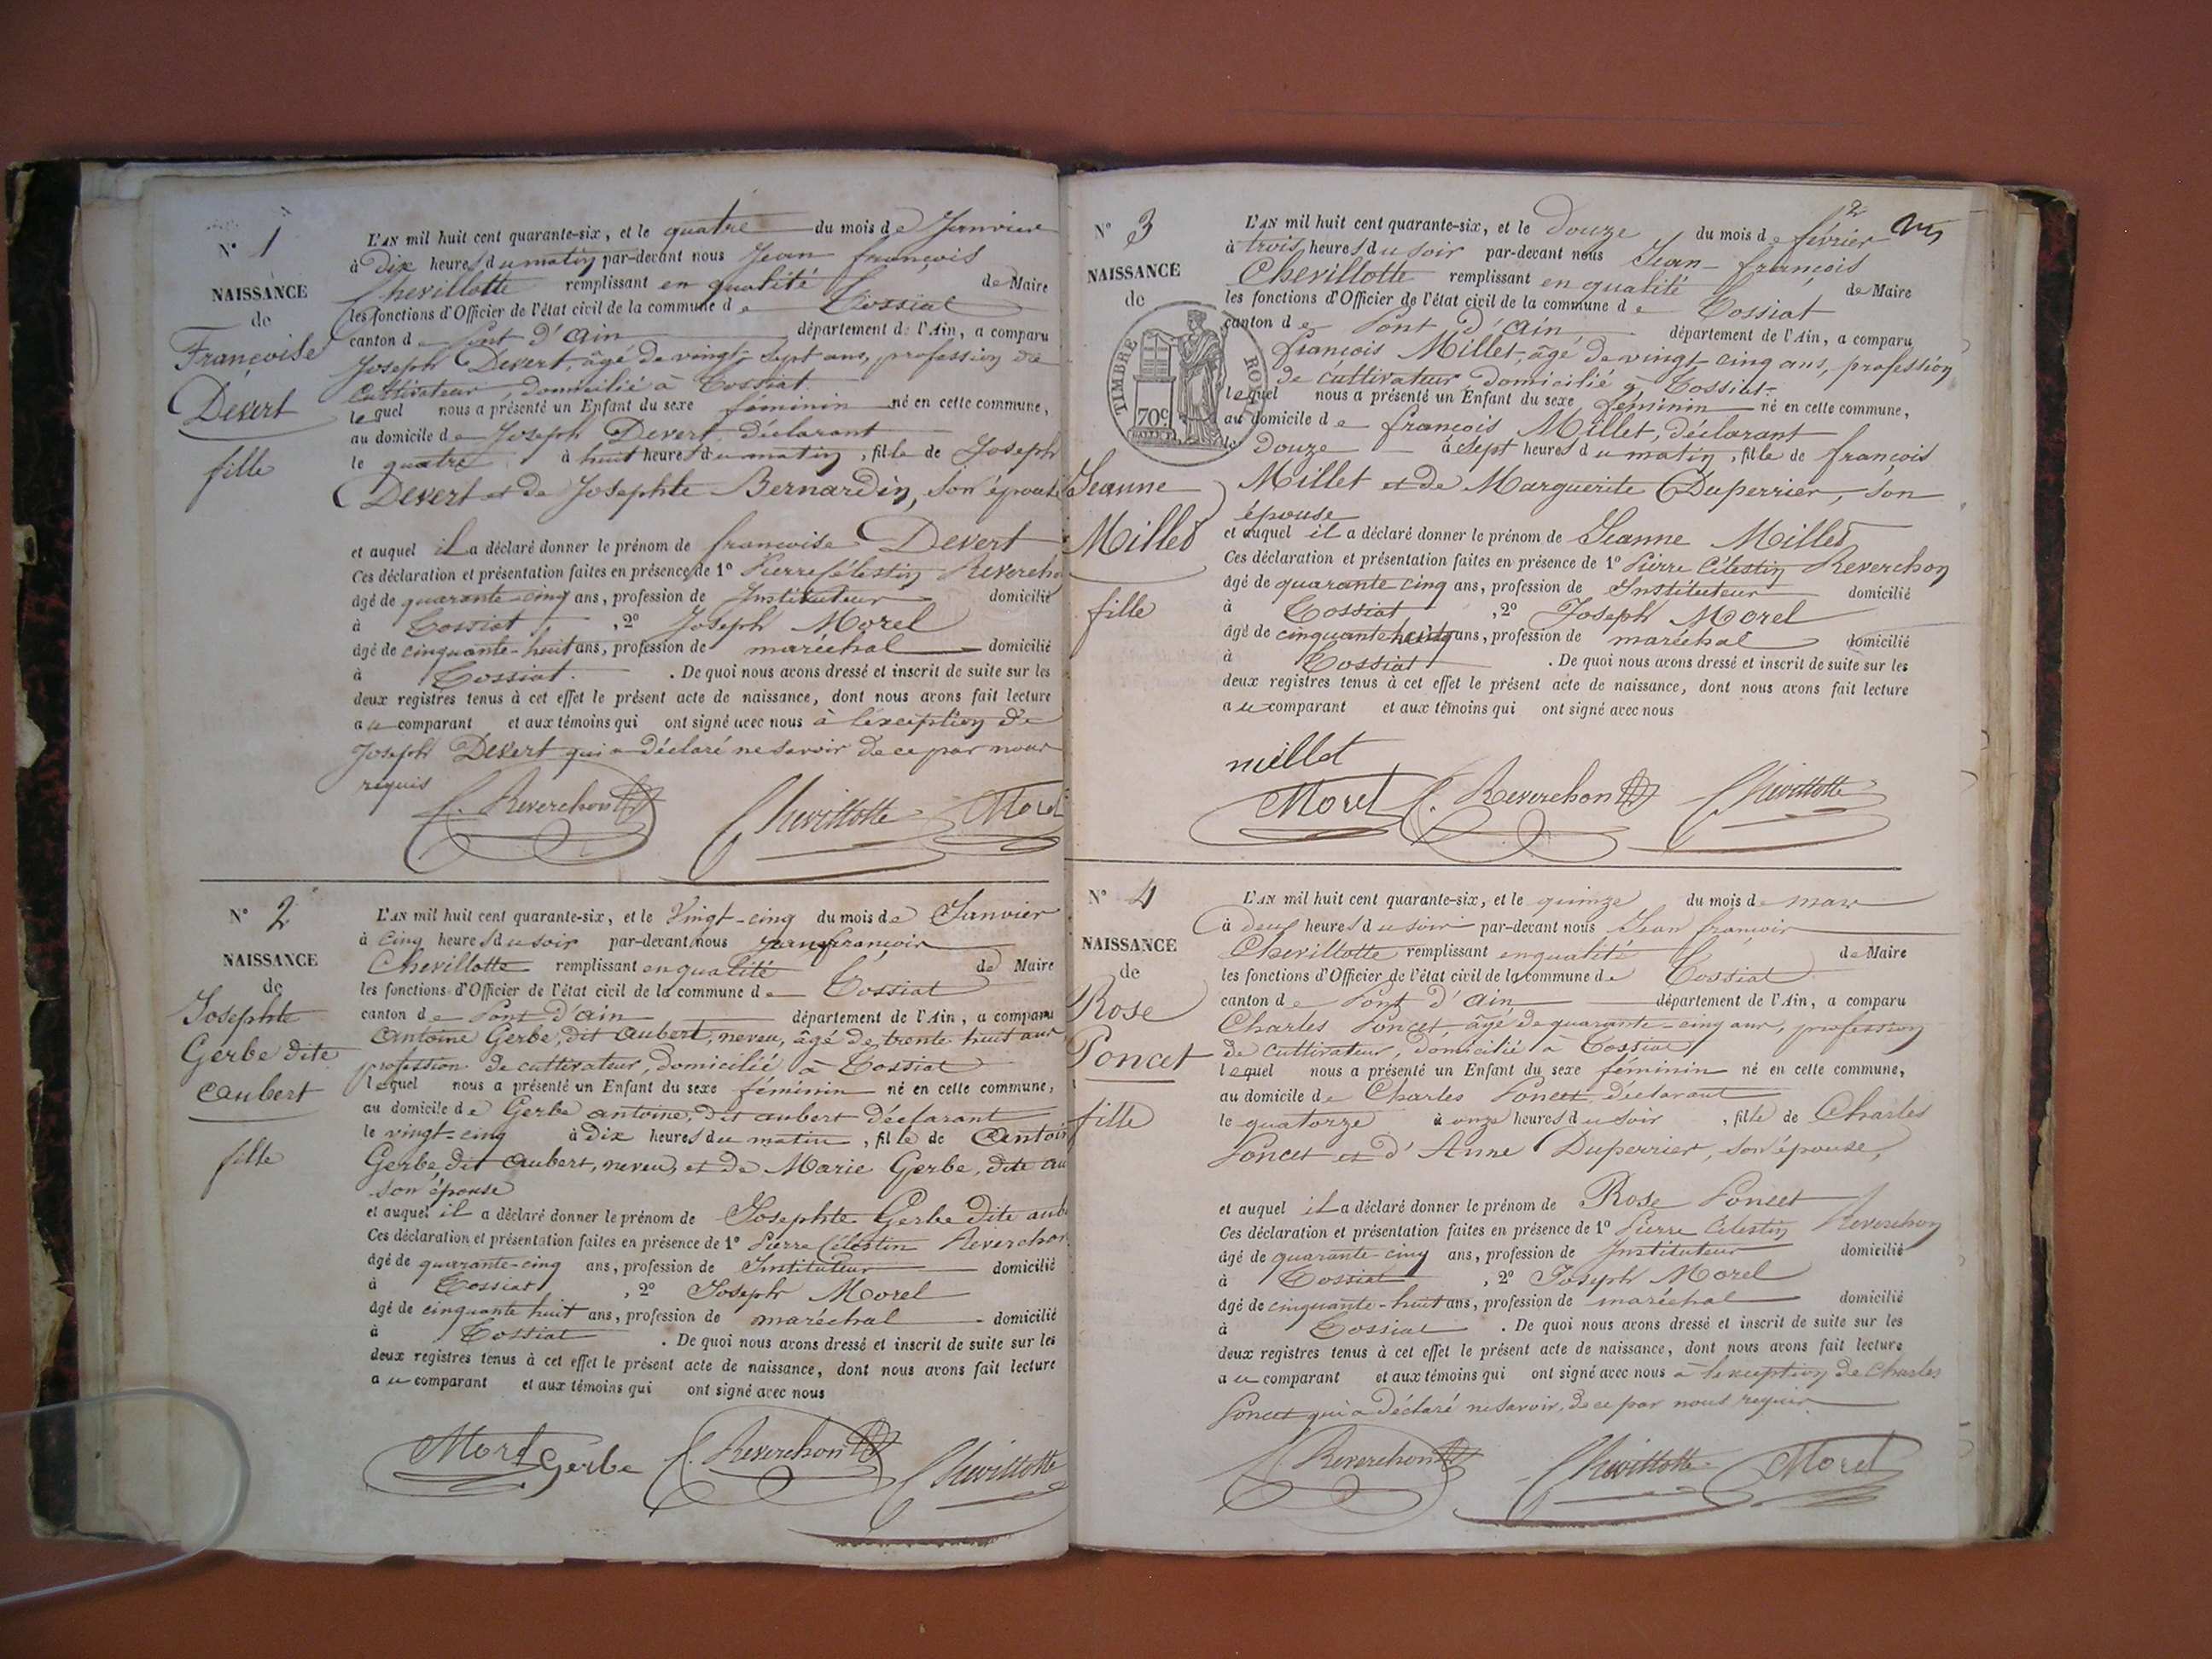 N° 1
NAISSANCE
de
Françoise
Devert
fille
L'AN mil huit cent quarante-six, et le quatre du mois de Janvier
à dix heures du matin par-devant nous Jean françois
Chevillotte remplissant en qualité de Maire
les fonctions d'Officier de l'état civil de la commune de Tossiat
canton de Pont d'Ain département de l'Ain, a comparu
Joseph Devert, âgé de vingt-sept ans, profession de
cultivateur, domicilié à Tossiat.
lequel nous a présenté un Enfant du sexe féminin né en cette commune,
au domicile de Joseph Devert, déclarant
le quatre à huit heures du matin, fille de Joseph
Devert et de Josephte Bernardin, son épouse
et auquel il a déclaré donner le prénom de françoise Devert
Ces déclaration et présentation faites en présence de 1° Pierre Célestin Reverchon
âgé de quarante-cinq ans, profession de Instituteur domicilié
à Tossiat, 2° Joseph Morel
âgé de cinquante-huit ans, profession de maréchal domicilié
à Tossiat. De quoi nous avons dressé et inscrit de suite sur les
deux registres tenus à cet effet le présent acte de naissance, dont nous avons fait lecture
au comparant et aux témoins qui ont signé avec nous à l'exception de
Joseph Devert qui a déclaré ne savoir de ce par nous
requis
C. Reverchon Chevillotte Morel
N° 2
NAISSANCE
de
Josephte
Gerbe dite
Aubert
fille
L'AN mil huit cent quarante-six, et le Vingt-cinq du mois de Janvier
à cinq heures du soir par-devant nous Jean françois
Chevillotte remplissant en qualité de Maire
les fonctions d'Officier de l'état civil de la commune de Tossiat
canton de Pont d'Ain département de l'Ain, a comparu
Antoine Gerbe, dit Aubert, neveu, âgé de trente huit ans
profession de cultivateur, domicilié à Tossiat
lequel nous a présenté un Enfant du sexe féminin né en cette commune,
au domicile de Gerbe antoine, dit aubert déclarant
le vingt-cinq à dix heures du matin, fille de Antoin
Gerbe, dit Aubert, neveu, et de Marie Gerbe, dite au
son épouse
et auquel il a déclaré donner le prénom de Josephte Gerbe dite aub
Ces déclaration et présentation faites en présence de 1° Pierre Célestin Reverchon
âgé de quarante-cinq ans, profession de Instituteur domicilié
à Tossiat, 2° Joseph Morel
âgé de cinquante huit ans, profession de maréchal domicilié
à Tossiat. De quoi nous avons dressé et inscrit de suite sur les
deux registres tenus à cet effet le présent acte de naissance, dont nous avons fait lecture
au comparant et aux témoins qui ont signé avec nous
Morel Gerbe C. Reverchon Chevillotte
2
N° 3
NAISSANCE
de
TIMBRE ROYAL
70c
Jeanne
Millet
fille
L'AN mil huit cent quarante-six, et le Douze du mois de février
à trois heures du soir par-devant nous Jean-françois
Chevillotte remplissant en qualité de Maire
les fonctions d'Officier de l'état civil de la commune de Tossiat
canton de Pont d'Ain département de l'Ain, a comparu
françois Millet, âgé de vingt cinq ans, profession
de cultivateur, domicilié à Tossiat.
lequel nous a présenté un Enfant du sexe féminin né en cette commune,
au domicile de françois Millet, déclarant
le Douze à sept heures du matin, fille de françois
Millet et de Marguerite Duperrier, son
épouse
et auquel il a déclaré donner le prénom de Jeanne Millet
Ces déclaration et présentation faites en présence de 1° Pierre Célestin Reverchon
âgé de quarante cinq ans, profession de Instituteur domicilié
à Tossiat, 2° Joseph Morel
âgé de cinquante huit ans, profession de maréchal domicilié
à Tossiat. De quoi nous avons dressé et inscrit de suite sur les
deux registres tenus à cet effet le présent acte de naissance, dont nous avons fait lecture
au comparant et aux témoins qui ont signé avec nous
millet
Morel C. Reverchon Chevillotte
N° 4
NAISSANCE
de
Rose
Poncet
fille
L'AN mil huit cent quarante-six, et le quinze du mois de mars
à deux heures du soir par-devant nous Jean françois
Chevillotte remplissant en qualité de Maire
les fonctions d'Officier de l'état civil de la commune de Tossiat
canton de Pont d'Ain département de l'Ain, a comparu
Charles Poncet âgé de quarante-cinq ans, profession
de cultivateur, domicilié à Tossiat
lequel nous a présenté un Enfant du sexe féminin né en cette commune,
au domicile de Charles Poncet, déclarant
le quatorze à onze heures du soir, fille de Charles
Poncet et d'Anne Duperrier, son épouse,
et auquel il a déclaré donner le prénom de Rose Poncet
Ces déclaration et présentation faites en présence de 1° Pierre Célestin Reverchon
âgé de quarante-cinq ans, profession de Instituteur domicilié
à Tossiat, 2° Joseph Morel
âgé de cinquante-huit ans, profession de maréchal domicilié
à Tossiat. De quoi nous avons dressé et inscrit de suite sur les
deux registres tenus à cet effet le présent acte de naissance, dont nous avons fait lecture
au comparant et aux témoins qui ont signé avec nous à l'exception de Charles
Poncet qui a déclaré ne savoir, de ce par nous requis
C. Reverchon Chevillotte Morel